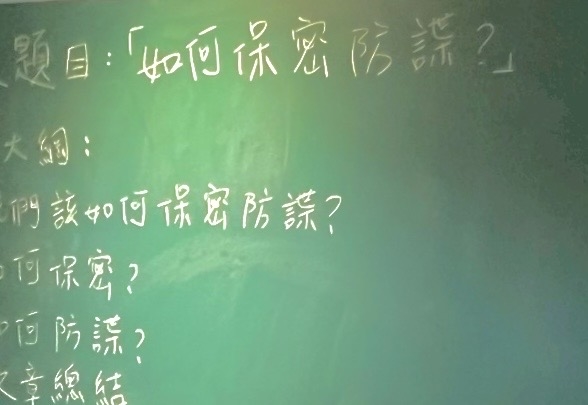 題目:「如何保密防諜?」
大綱:
們該如何保密防諜?
如何保密?
如何防諜?
文章總結